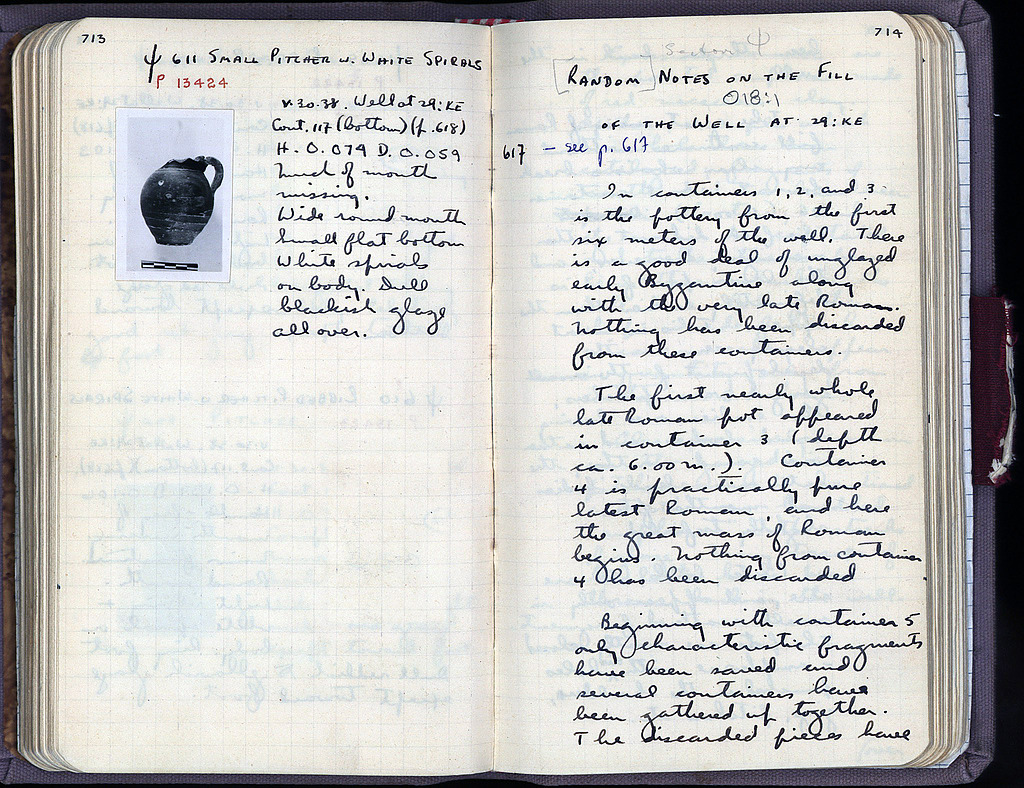 713
Ψ 611 SMALL PITCHER W. WHITE SPIRALS
P 13424
V.30.38. Well at 29:KE
Cont. 117 (bottom) (p. 618)
H. 0.079 D. 0.059
Much of mouth
missing.
Wide round mouth
Small flat bottom
White spirals
on body. Dull
blackish glaze
all over.
714
Section Ψ
[RANDOM] NOTES ON THE FILL
O18:1
OF THE WELL AT 29:KE
617 – see p. 617
In containers 1, 2, and 3
is the pottery from the first
six meters of the well. There
is a good deal of unglazed
early Byzantine along
with the very late Roman.
Nothing has been discarded
from these containers.
The first nearly whole
late Roman pot appeared
in container 3 (depth
ca. 6.00 m.). Container
4 is practically pure
latest Roman, and here
the great mass of Roman
begins. Nothing from container
4 has been discarded
Beginning with container 5
only characteristic fragments
have been saved and
several containers have
been gathered up together.
The discarded pieces have